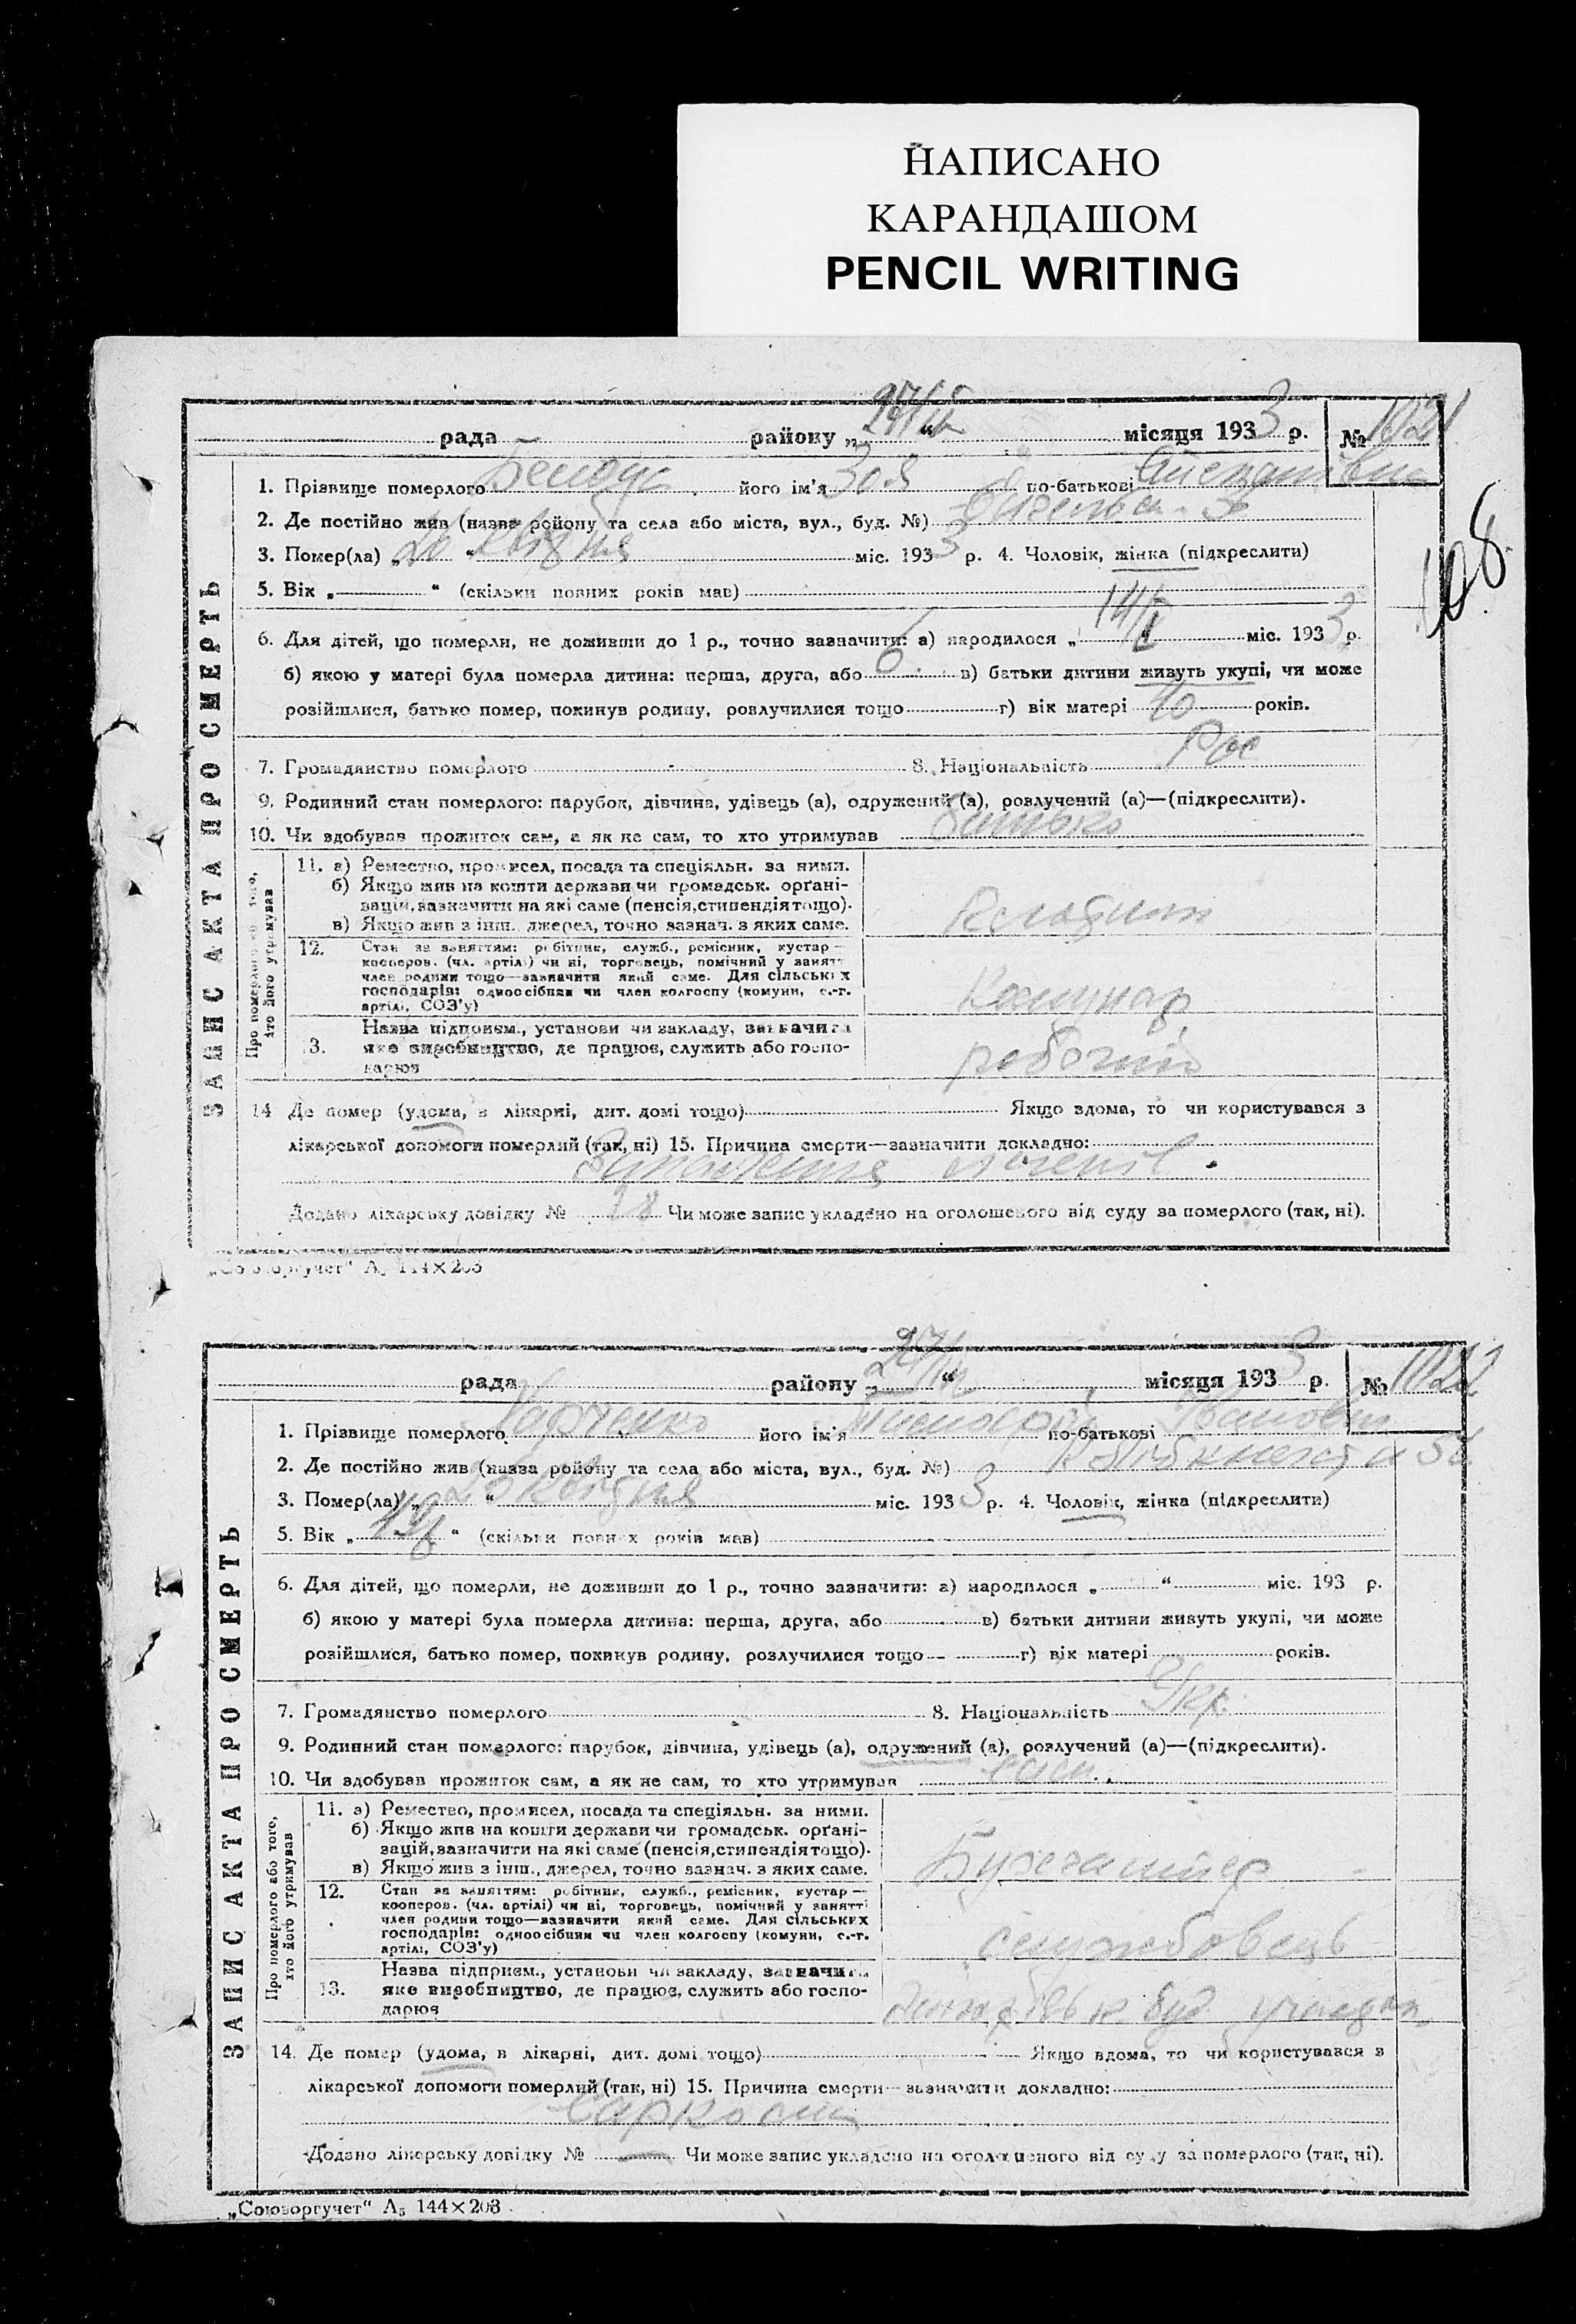 НАПИСАНО
КАРАНДАШОМ
PENCIL WRITING
рада районy „27/IV“ місяця 1933 р. № 1021
1. Прізвище померлого його ім'я Зоя по-батькові Степанівна
2. Де постійно жив (назва району та села або міста, вул., буд. №)
3. Помер(ла) „26“ квітня міс. 1933 р. 4. Чоловік, жінка (підкреслити)
5. Вік „ “ (скільки повних років мав)
108
6. Для дітей, що померли, не доживши до 1 р., точно зазначити: а) народилося „14/I“ міс. 1933 р.
б) якою у матері була померла дитина: перша, друга, або 6. в) батьки дитини живуть укупі, чи може
розійшлися, батько помер, покинув родину, розлучилися тощо г) вік матері 40 років.
7. Громадянство померлого 8. Національність Рос
9. Родинний стан померлого: парубок, дівчина, удівець (а), одружений (а), розлучений (а)—(підкреслити).
10. Чи здобував прожиток сам, а як не сам, то хто утримував батько
ЗАПИС АКТА ПРО СМЕРТЬ
Про померлого або того, хто його утримував
11. а) Ремество, промисел, посада та спеціяльн. за ними.
б) Якщо жив на кошти держави чи громадськ. орґані-
зацій, зазначити на які саме (пенсія, стипендія тощо).
в) Якщо жив з інш. джерел, точно зазнач. з яких саме.
12. Стан за заняттям: робітник, служб., ремісник, кустар —
кооперов. (чл. артілі) чи ні, торговець, помічний у занятті
член родини тощо—зазначити який саме. Для сільських
господарів: одноосібник чи член колгоспу (комуни, с.-г.
артілі, СОЗ'у)
Комунар
13. Назва підприєм., установи чи закладу, зазначити
яке виробництво, де працює, служить або госпо-
дарює
робочий
14 Де помер (удома, в лікарні, дит. домі тощо) Якщо вдома, то чи користувався з
лікарської допомоги померлий (так, ні) 15. Причина смерти—зазначити докладно:
Запалення легенів.
Додано лікарську довідку № 78 Чи може запис укладено на оголошеного від суду за померлого (так, ні).
„Союзоргучет“ А5 144×203
рада району „27/IV“ місяця 1933 р. № 1022
1. Прізвище померлого Харченко його ім'я по-батькові Іванович
2. Де постійно жив (назва району та села або міста, вул., буд. №) К Лібкнехта 56
3. Помер(ла) „26“ квітня міс. 1933 р. 4. Чоловік, жінка (підкреслити)
5. Вік „ “ (скільки повних років мав)
6. Для дітей, що померли, не доживши до 1 р., точно зазначити: а) народилося „ “ міс. 193 р.
б) якою у матері була померла дитина: перша, друга, або в) батьки дитини живуть укупі, чи може
розійшлися, батько помер, покинув родину, розлучилися тощо г) вік матері років.
7. Громадянство померлого 8. Національність Укр.
9. Родинний стан померлого: парубок, дівчина, удівець (а), одружений (а), розлучений (а)—(підкреслити).
10. Чи здобував прожиток сам, а як не сам, то хто утримував сам.
ЗАПИС АКТА ПРО СМЕРТЬ
Про померлого або того, хто його утримував
11. а) Ремество, промисел, посада та спеціяльн. за ними.
б) Якщо жив на кошти держави чи громадськ. орґані-
зацій, зазначити на які саме (пенсія, стипендія тощо).
в) Якщо жив з інш., джерел, точно зазнач. з яких саме.
Бухгалтер
12. Стан за заняттям: робітник, служб., ремісник, кустар —
кооперов. (чл. артілі) чи ні, торговець, помічний у занятті
член родини тощо—зазначити який саме. Для сільських
господарів: одноосібник чи член колгоспу (комуни, с.-г.
артілі, СОЗ'у)
службовець
13. Назва підприєм., установи чи закладу, зазначити
яке виробництво, де працює, служить або госпо-
дарює
буд.
14. Де помер (удома, в лікарні, дит. домі тощо) Якщо вдома, то чи користувався з
лікарської допомоги померлий (так, ні) 15. Причина смерти—зазначити докладно:
Саркома
Додано лікарську довідку № Чи може запис укладено на оголошеного від суду за померлого (так, ні).
„Союзоргучет“ А5 144×203